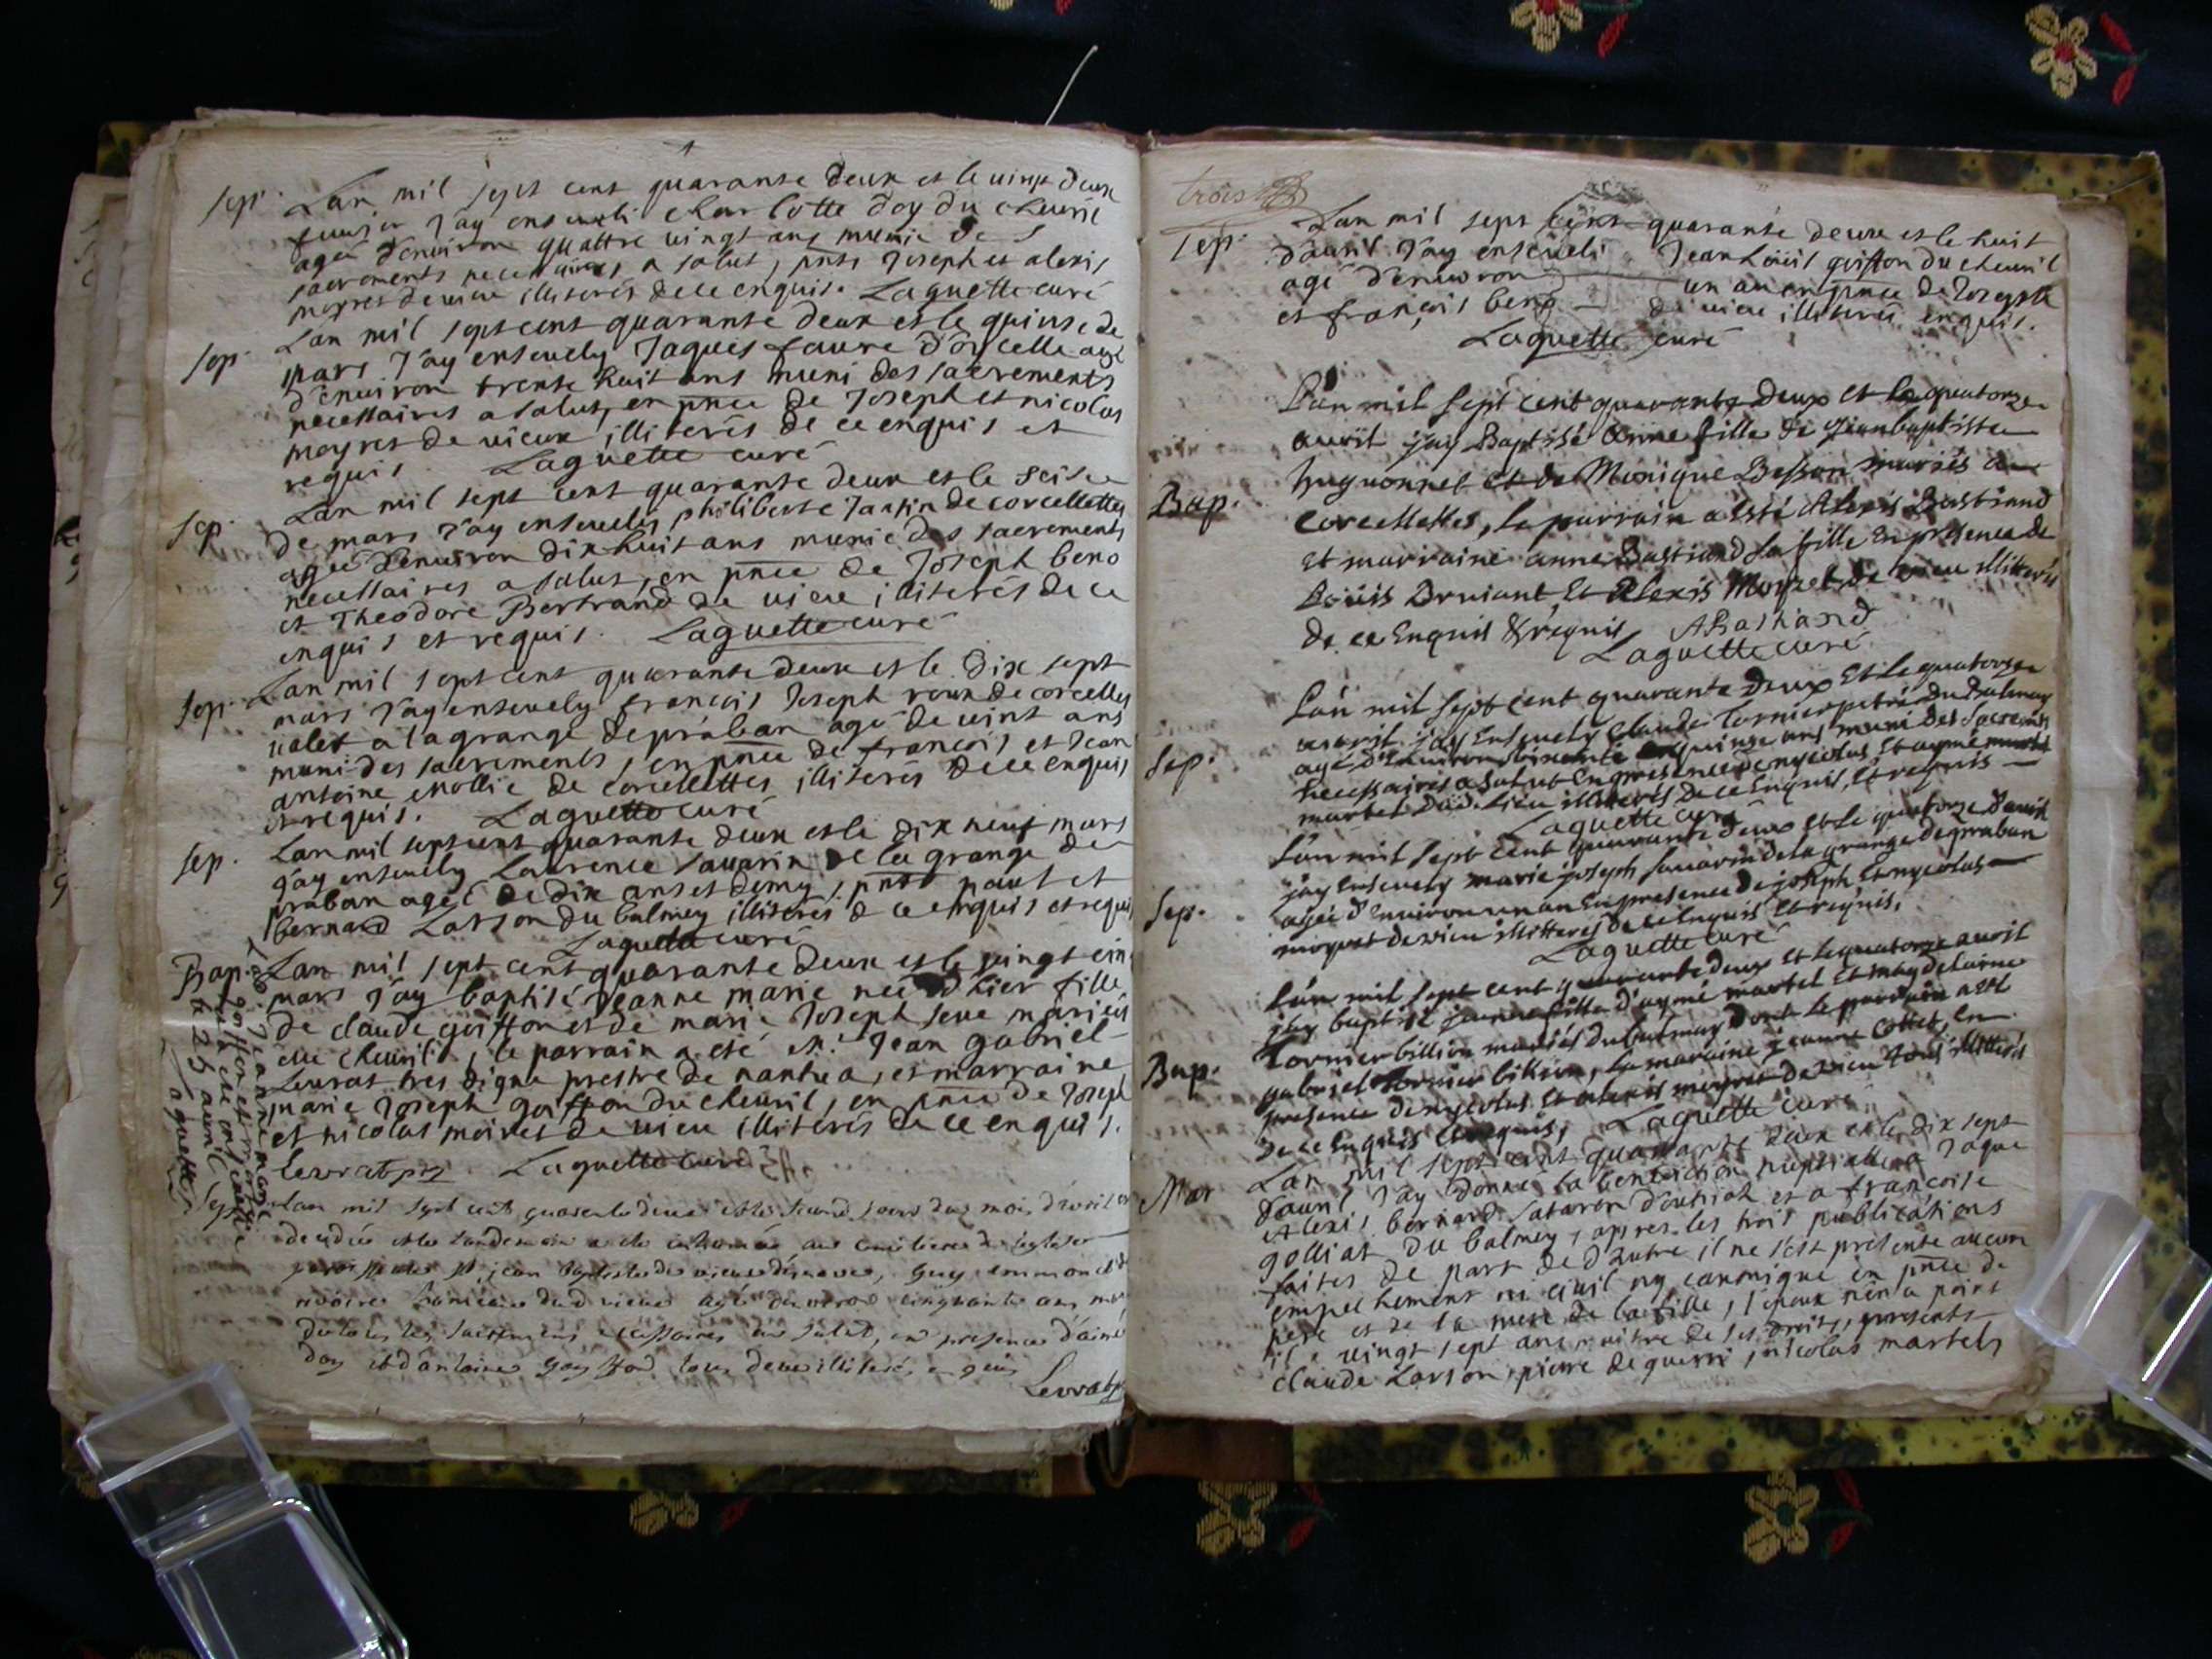 sep. Lan mil sept cent quarante deux et le vint deux
feuvier J'ay enseveli charlotte doy du chevril
agée d'environ quattre vingt ans munie de s
sacrements necessaires a salut, pnts Joseph et alexis
moyret de vieu illiterés de ce enquis. Laguette curé
sep. Lan mil sept cent quarante deux et le quinse de
mars J'ay ensevely Jaques faure d'orcelle agé
d'environ trente huit ans muni des sacrements
necessaires a salut, en pnce de Joseph et nicolas
moyret de vieux illiterés de ce enquis et
requis. Laguette curé
sep. Lan mil sept cent quarante deux et le seise
de mars J'ay ensevely philiberte Jantin de corcellettes
agée d'environ dix huit ans munie des sacrements
necessaires a salut, en pnce de Joseph beno
et Theodore Bertrand de vieu illiterés de ce
enquis et requis. Laguette curé
sep. Lan mil sept cent quarante deux et le dix sept
mars J'ay ensevely françois Joseph roux de corcelles
valet a la grange de praban agé de vint ans
muni des sacrements, en pnce de françois et Jean
antoine mollie de corcellettes illiterés de ce enquis
et requis. Laguette curé
sep. Lan mil sept cent quarante deux et le dix neuf mars
J'ay ensevely Laurence savarin de la grange de
praban agée de dix ans et demy, pnts paul et
bernard Larson du balmey illiterés de ce enquis et requis
Laguette curé
Bap. Lan mil sept cent quarante deux et le vingt cin
mars J'ay baptisé Jeanne marie née d'hier fille
de claude goiffon et de marie Joseph seve mariés
au chevril, le parrain a eté Mr. Jean gabriel
Levrat tres digne prestre de nantua, et marraine
marie Joseph goiffon du chevril, en pnce de Joseph
et nicolas moiret de vieu illiterés de ce enquis.
Levrat ptre. Laguette curé
Lad. Jeanne marie
goiffon est morte
et a eté ensevelie
le 25 avril
Laguette
sep. Lan mil sept cent quarante deux et le second jour du mois d'avril est
decedée et le landemain a eté inhumé au cimetiere de l'eglise
st jean baptiste de vieux, Guy emmonet
agé d'environ cinquante ans muni
de tous les sacremens necessaires au salut, en presence d'aimé
doy et d'antoine goyffon tous deux illiterés enquis
Levrat p
trois
sep. Lan mil sept cent quarante deux et le huit
d'avril J'ay enseveli Jean Louïs goiffon du chevril
agé d'environ un an en pnce de Joseph
et françois beno de vieu illiterés enquis.
Laguette curé
Bap. L'an mil sept cent quarante deux et le quatorze
avril j'ay Baptisé Anne fille de Jean baptiste
huguonnet et de Monique Besson mariés a
corcellettes, le parrain a esté Alexis Bastiand
et marraine anne Bastiand sa fille En presence de
Loüis Druiant Et Alexis Moyret de vieu illitterés
de ce Enquis & requis ABastiand
Laguette curé
Sep. L'an mil sept cent quarante deux Et le quatorze
avril j'ay ensevely claude Tornier petrié du Balmay
agé d'Environ soixante quinze ans muni des Sacremts
necessaires a salut En presence de nycolas Et aymé
martel dud. Lieu illitterés De ce Enquis, Et requis
Laguette curé
Sep. L'an mil sept cent quarante deux et le quatorze d'avril
j'ay Ensevely marie joseph savarin de la grange de praban
agée d'Environ un an En presence de joseph Et nycolas
moyret de vieu illitterés de ce Enquis Et requis.
Laguette curé
Bap. L'an mil sept cent quarante deux et le quatorze avril
j'ay baptisé jeanne fille d'aymé martel Et magdelaine
Tornier billion mariés du balmay dont le parrain a esté
gabriel Tornier billion, la maraine jeanne Cottet, En
presence de nycolas Et alexis moyret de vieu tous illitterés
de ce Enquis Et requis. Laguette curé
Mar Lan mil sept cent quarante deux et le dix sept
d'avril J'ay donné la benediction nuptialle a Jaque
Alexis bernard sataron d'outriat et a francoise
golliat du balmey, apres les trois publications
faites de part et d'autre il ne s'est présenté aucun
empechement ni civil ny canonique en pnce de
pere et de la mere de la fille, l'epoux n'en a point
il a vingt sept ans maitre de ses droits, presents
claude Larson, pierre deguerri, nicolas martel,